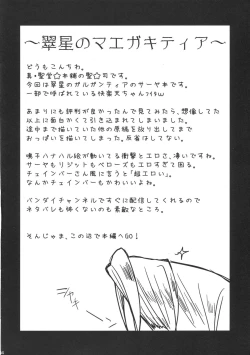 ～翠星のマエガキティア～
どうもこんちわ。
真・聖堂☆本舗の聖☆司です。
今回は翠星のガルガンティアのサーヤ本です。
一部で呼ばれている快楽天ちゃんﾌﾋﾋw
あまりにも評判が良かったんで見てみたら、想像してた
以上に面白かくて引き込まれてしまいました。
途中まで描いていた他の原稿を放り出してまで
おっぱいを描いてしまった。反省はしてない。
鳴子ハナハル絵が動いてる衝撃とエロさ、凄いですね。
サーヤもリジットもベローズもエロすぎて困る。
チェインバーさん風に言うと「超エロい」。
なんかチェインバーもかわいいよね。
バンダイチャンネルですぐ配信してくれるので
ネタバレも怖くないのも素敵なところ。
そんじゃま、この辺で本編へGO！